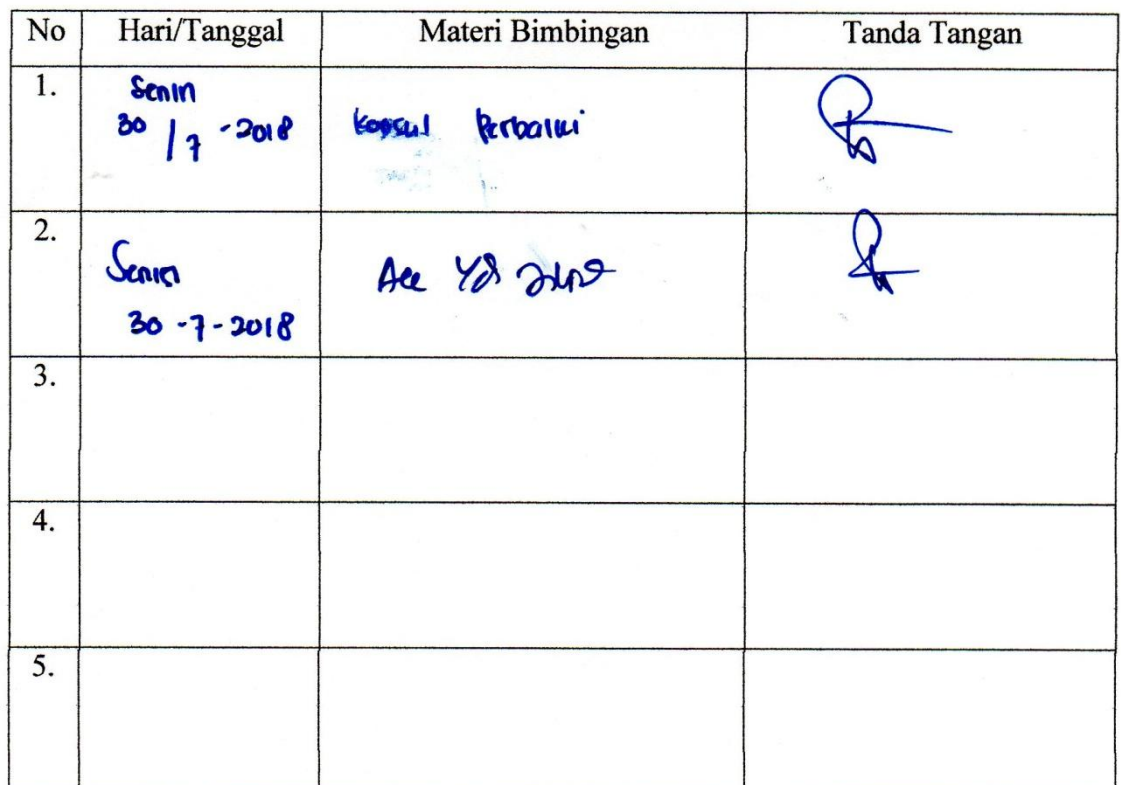 No Hari/Tanggal Materi Bimbingan Tanda Tangan
1. Senin
30/7-2018 Konsul Perbaiki
2. Senin Acc
30-7-2018
3.
4.
5.